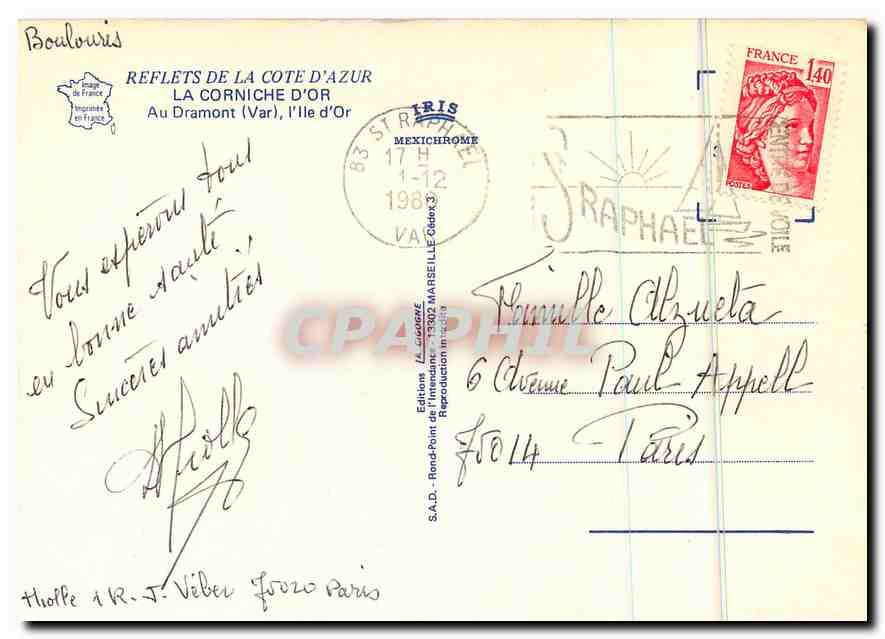 Boulouris
Image
de France
Imprimée
en France
REFLETS DE LA COTE D'AZUR
LA CORNICHE D'OR
Au Dramont (Var), l'Ile d'Or
IRIS
MEXICHROME
83 ST RAPHAEL
17 H
1-12
VAR
ST RAPHAEL
VOILE
FRANCE
1,40
POSTES
Vous espérons tous
en bonne santé.
Sincères amitiés
Famille Alzueta
6 Avenue Paul Appell
75014 Paris
Editions LA CIGOGNE
S.A.D. - Rond-Point de l'Intendance - 13302 MARSEILLE Cédex 3
Reproduction interdite
CPAPHIL
1 R. J. Véber 75020 Paris